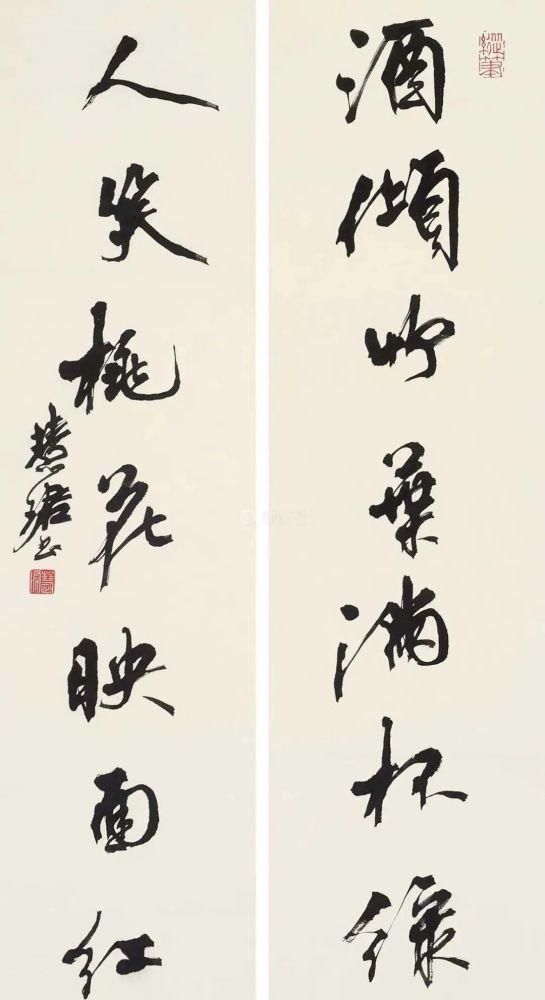 酒傾竹葉滿杯綠
人笑桃花映面紅
慧珺书